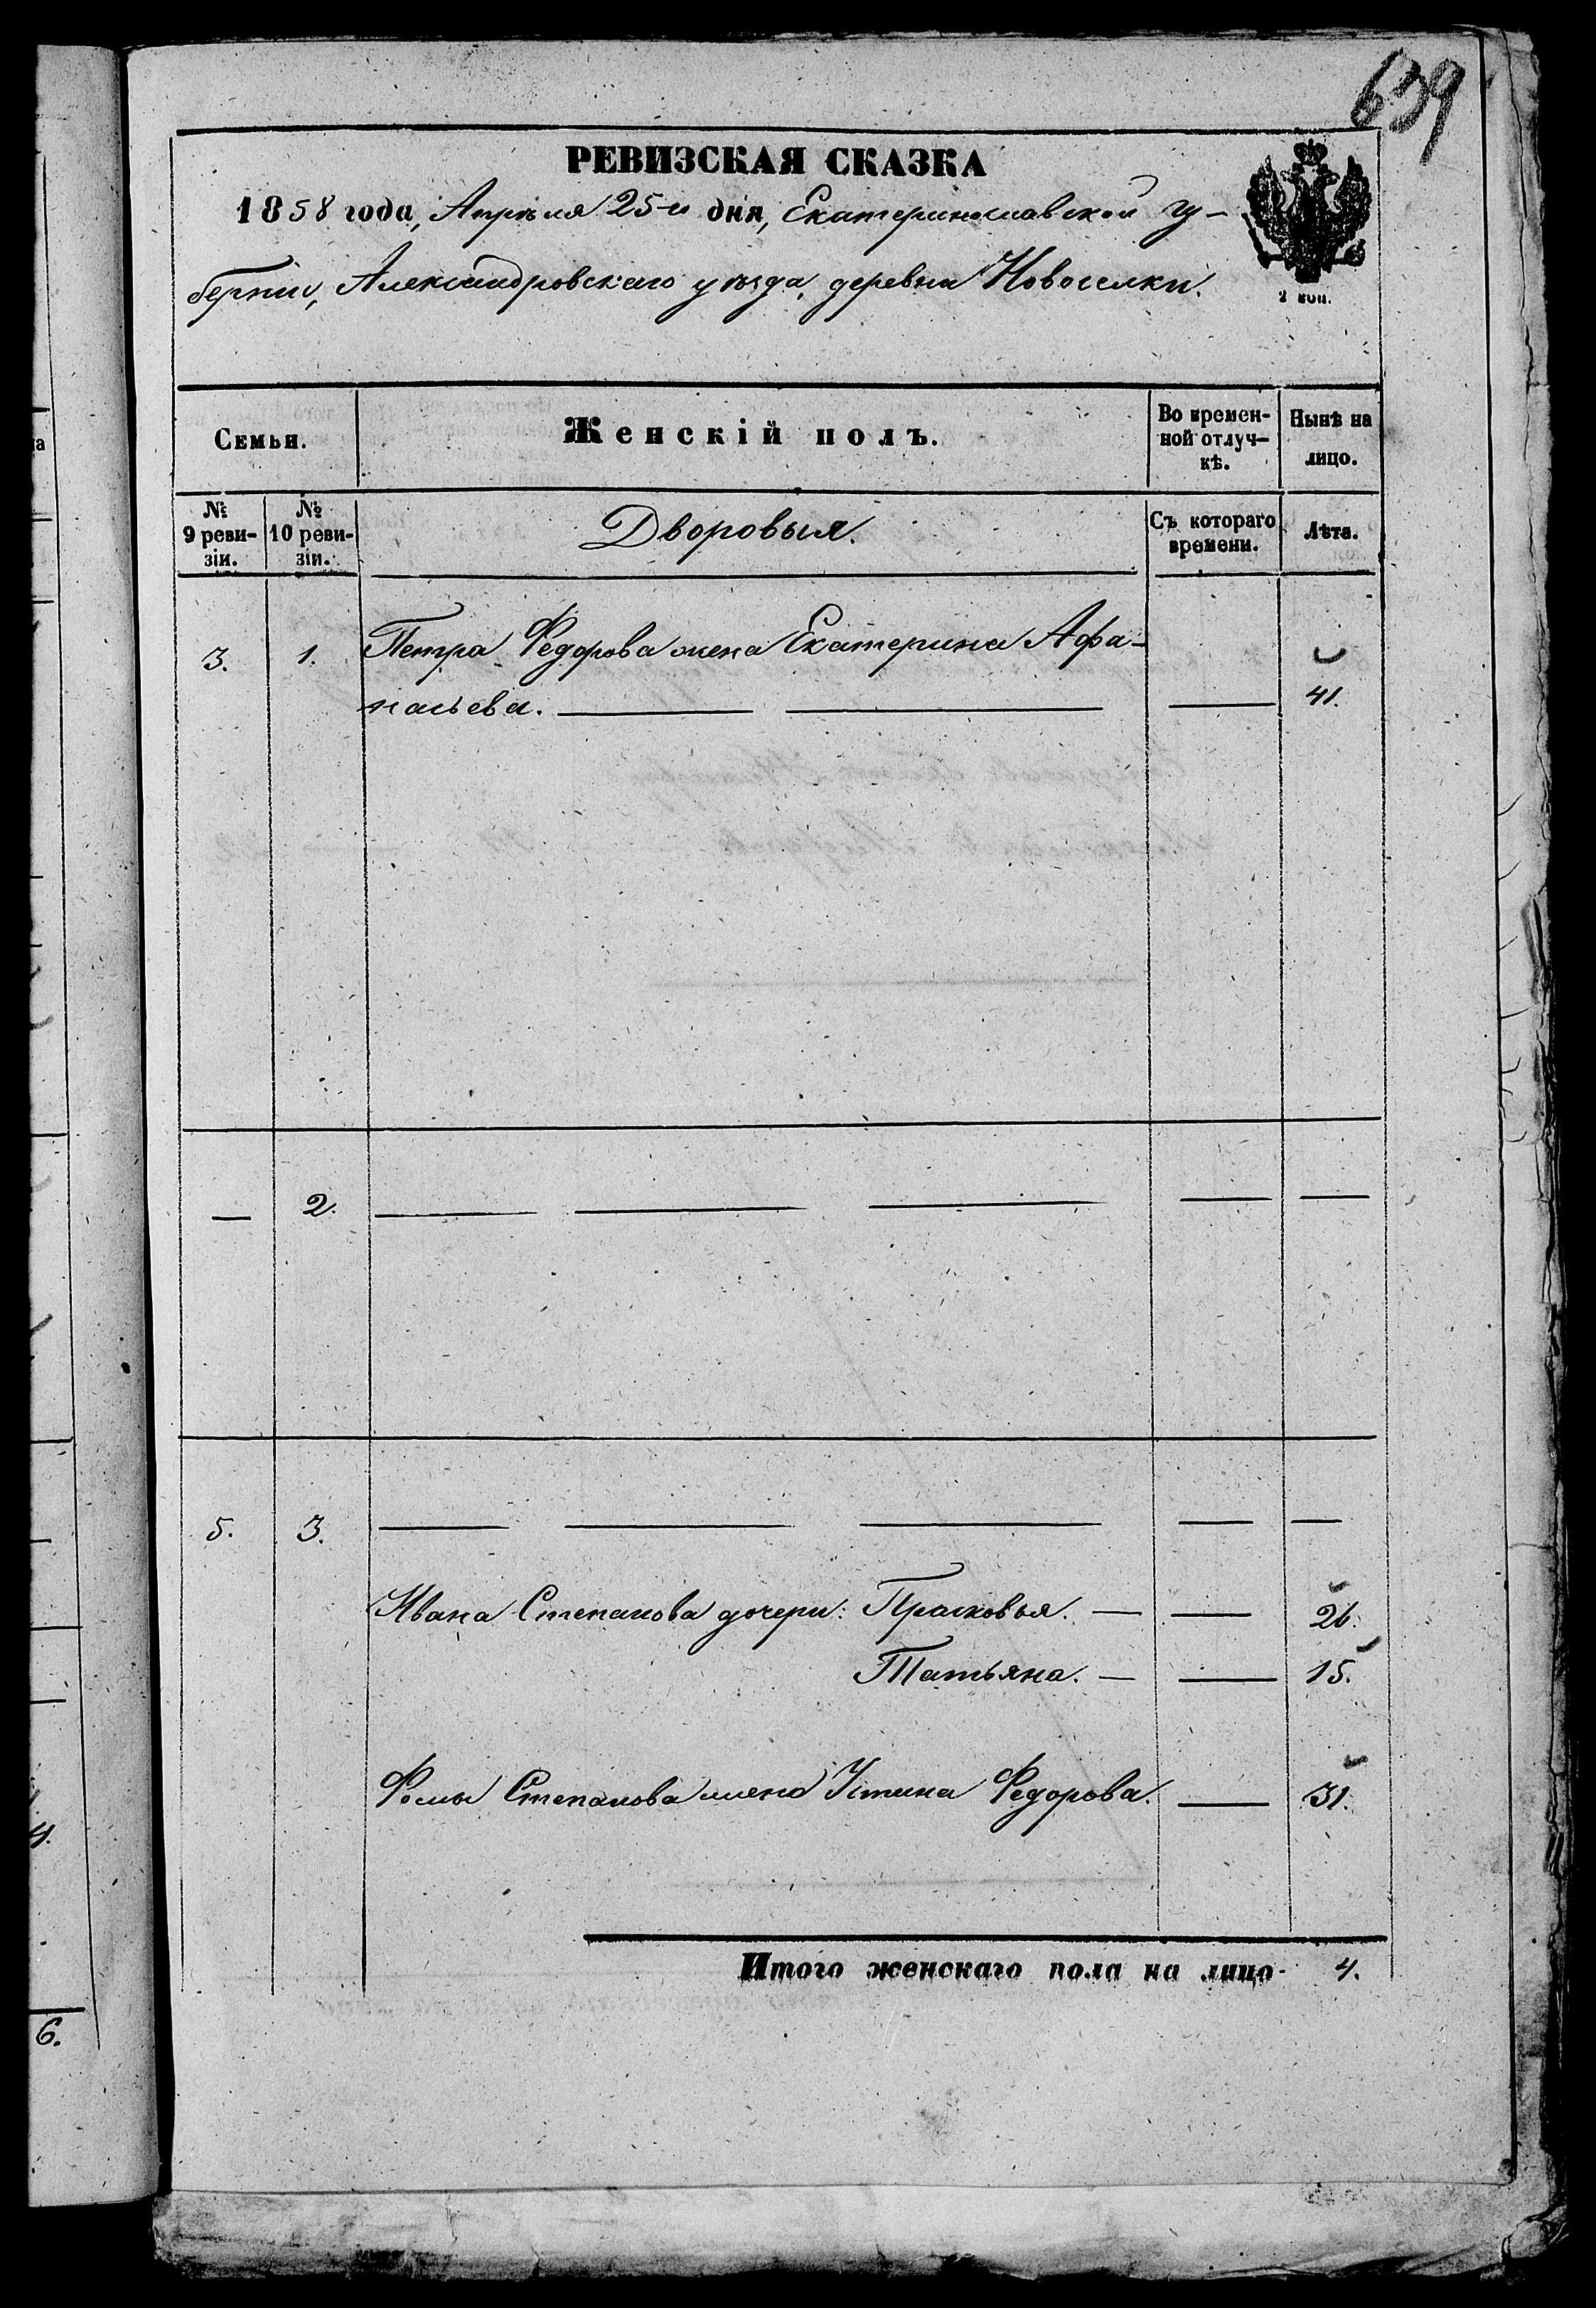 639
РЕВИЗСКАЯ СКАЗКА
1858 года, Апрѣля 25-го дня, Екатеринославской гу-
берніи, Александровскаго уѣзда, деревни Новоселки.
2 коп.
Семьи.
Женскій полъ.
Во времен-
ной отлуч-
кѣ.
Нынѣ на
лицо.
№
9 реви-
зіи.
№
10 реви-
зіи.
Дворовыя.
Съ котораго
времени.
Лѣта.
3. 1. Петра Федорова жена Екатерина Афа-
насьева. — — — 41.
— 2. — — — — —
5. 3. — — — — —
Ивана Степанова дочери: Прасковья. — — 26.
Татьяна. — — 15.
Фомы Степанова жена Устина Федорова. — 31.
Итого женскаго пола на лицо 4.
а
4.
6.